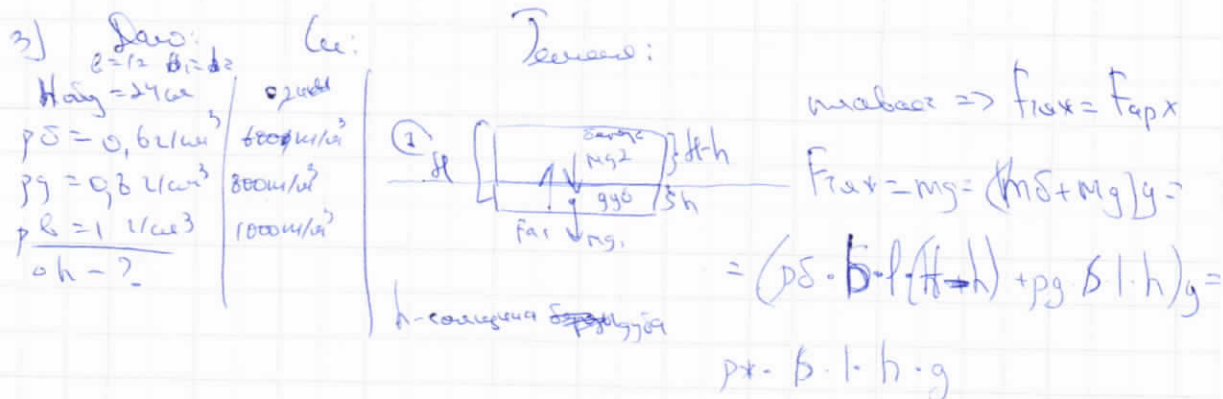 3) Дано: Си: Решение:
l=l2 b1=b2
Hобщ = 24 см 0,24 м
ρб = 0,6 г/см³ 600 кг/м³
ρg = 0,8 г/см³ 800 кг/м³
ρв = 1 г/см³ 1000 кг/м³
h - ?
① H береза mg2 } H-h
дуб } h
Fа1 mg1
h - толщина дуба
плавает => Fтяж = Fарх
Fтяж = mg = (mб + mg)g =
= (ρб · b · l · (H-h) + ρg · b · l · h)g =
ρж · b · l · h · g